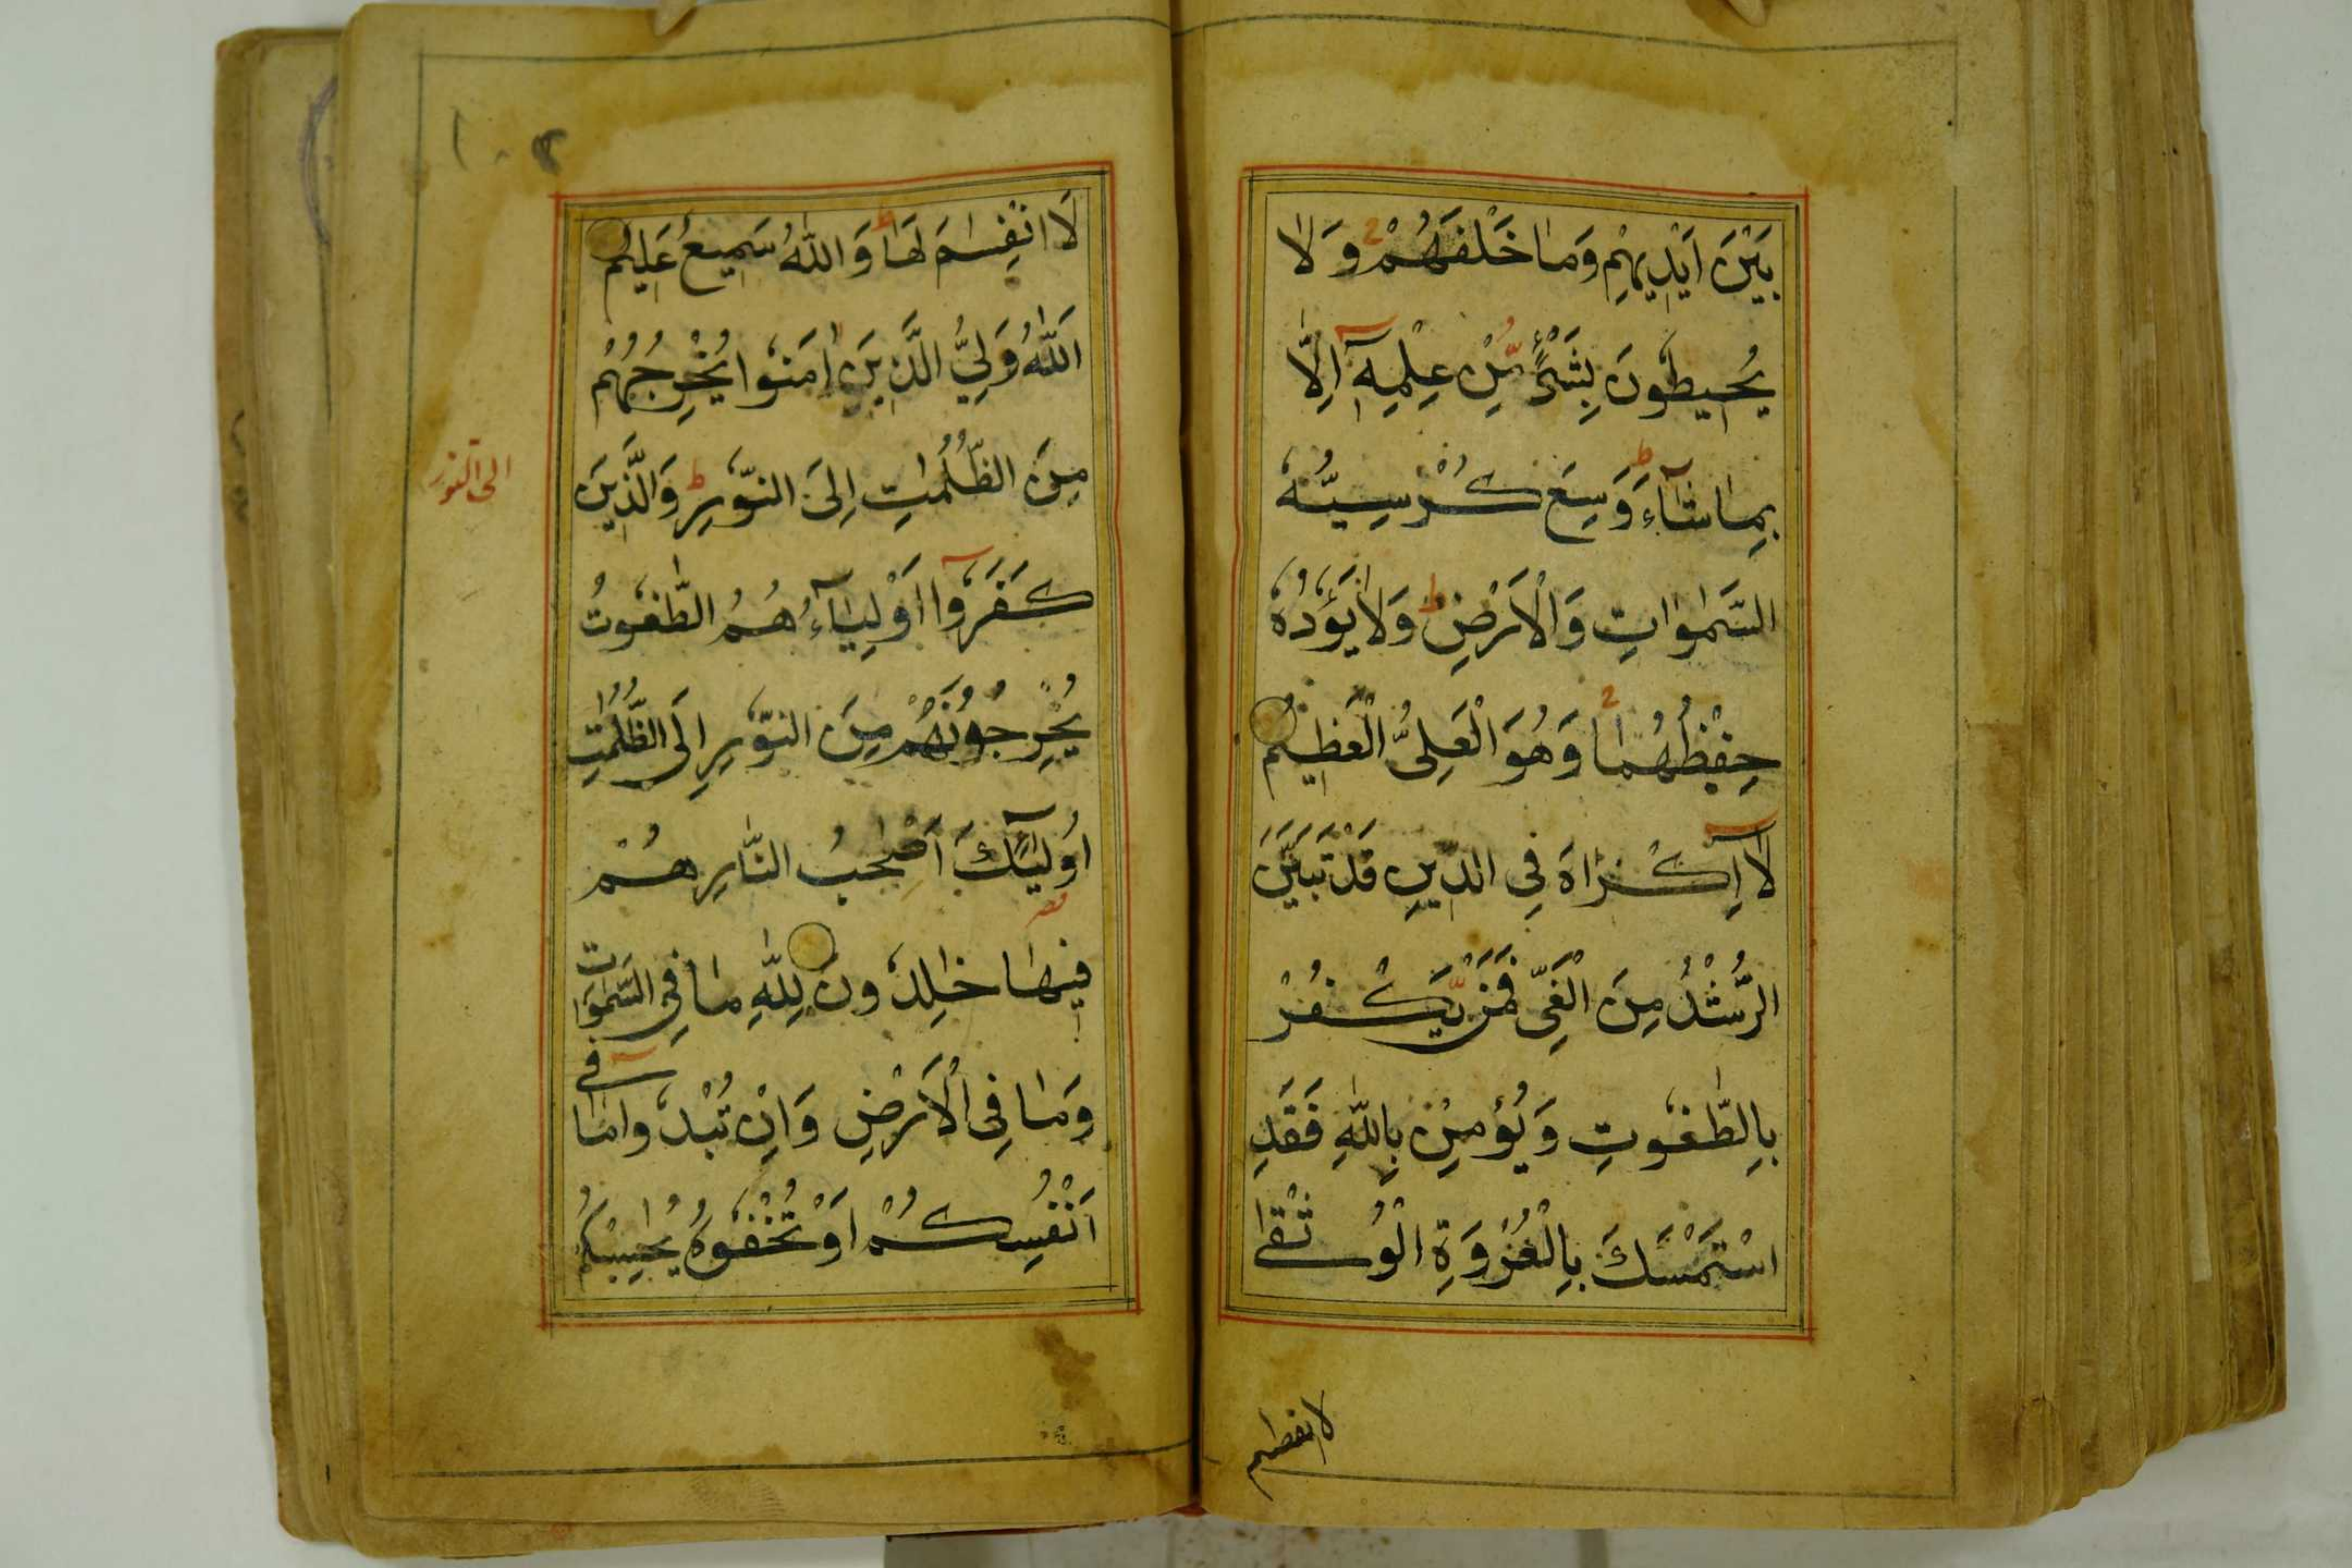 بَيْنَ اَيْدِيهِمْ وَمَا خَلْفَهُمْ وَلَا
يُحِيطُونَ بِشَيْءٍ مِّنْ عِلْمِهِٓ اِلَّا
بِمَا شَآءَ وَسِعَ كُرْسِيُّهُ
السَّمٰوَاتِ وَالْاَرْضِ وَلَا يَؤُدُهُ
حِفْظُهُمَا وَهُوَ الْعَلِيُّ الْعَظِيمُ
لَآ اِكْرَاهَ فِي الدِّينِ قَدْ تَبَيَّنَ
الرُّشْدُ مِنَ الْغَيِّ فَمَنْ يَّكْفُرْ
بِالطّٰغُوتِ وَيُؤْمِنْ بِاللّٰهِ فَقَدِ
اسْتَمْسَكَ بِالْعُرْوَةِ الْوُثْقٰى
لا انفصام
١٠٢
لَا انْفِصَامَ لَهَا وَاللّٰهُ سَمِيعٌ عَلِيمٌ
اَللّٰهُ وَلِيُّ الَّذِينَ اٰمَنُوا يُخْرِجُهُمْ
مِنَ الظُّلُمٰتِ اِلَى النُّورِ وَالَّذِينَ
الى النور
كَفَرُوٓا اَوْلِيَآءُهُمُ الطّٰغُوتُ
يُخْرِجُونَهُمْ مِنَ النُّورِ اِلَى الظُّلُمٰتِ
اُولٰٓئِكَ اَصْحٰبُ النَّارِ هُمْ
فِيهَا خٰلِدُونَ لِلّٰهِ مَا فِي السَّمٰوَاتِ
وَمَا فِي الْاَرْضِ وَاِنْ تُبْدُوا مَا فِىٓ
اَنْفُسِكُمْ اَوْ تُخْفُوهُ يُحَاسِبْكُمْ